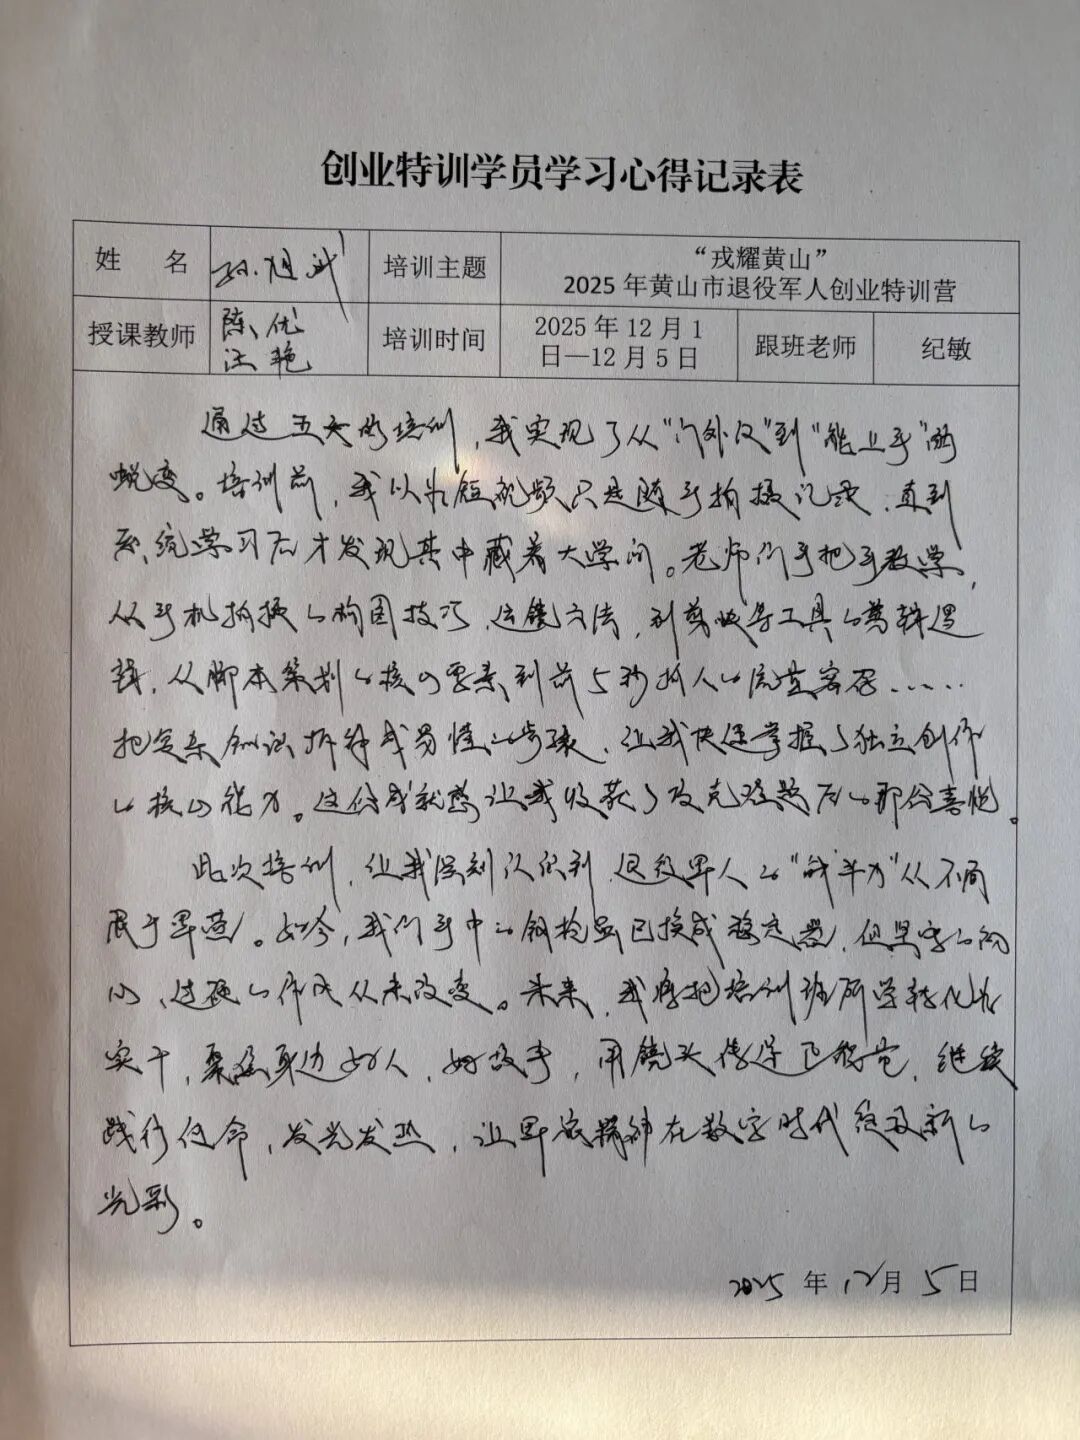 创业特训学员学习心得记录表
姓 名 孙旭武 培训主题 “戎耀黄山”
2025年黄山市退役军人创业特训营
授课教师 陈优
汪艳
培训时间 2025年12月1
日—12月5日
跟班老师 纪敏
通过五天的培训，我实现了从“门外汉”到“能上手”的
蜕变。培训前，我以为短视频只是随手拍摄记录，直到
系统学习后才发现其中藏着大学问。老师们手把手教学，
从手机拍摄的构图技巧、运镜方法，到剪映等工具的剪辑逻
辑，从脚本策划的核心要素到前5秒抓人的流量密码……
把复杂知识拆解成易懂的步骤，让我快速掌握了独立创作
的核心能力。这份成就感让我收获了攻克难题后的那份喜悦。
此次培训，让我深刻认识到，退役军人的“战斗力”从不局
限于军营。如今，我们手中的钢枪虽已换成稳定器，但坚守的初
心、过硬的作风从未改变。未来，我将把培训班所学转化为
实干，聚焦身边好人、好故事，用镜头传递正能量，继续
践行使命，发光发热，让军旅精神在数字时代绽放新的
光彩。
2025年12月5日